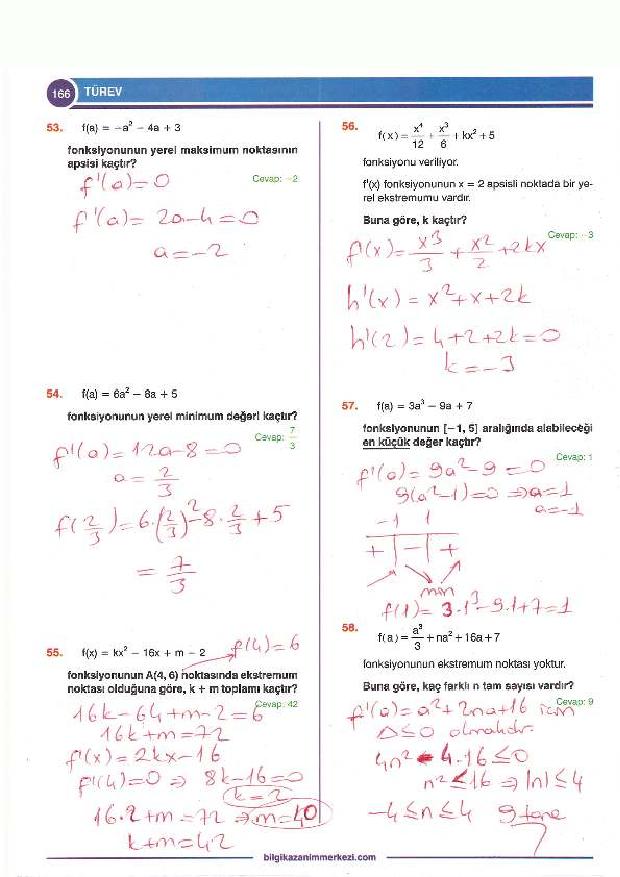 166 TÜREV
53. f(a) = −a² − 4a + 3
fonksiyonunun yerel maksimum noktasının
apsisi kaçtır?
Cevap: −2
f'(a)=0
f'(a)= 2a-4=0
a=-2
54. f(a) = 6a² − 8a + 5
fonksiyonunun yerel minimum değeri kaçtır?
Cevap: 7/3
f'(a)=12a-8=0
a=2/3
f(2/3)=6.(2/3)²-8.2/3+5
=7/3
55. f(x) = kx² − 16x + m − 2
f(4)=6
fonksiyonunun A(4, 6) noktasında ekstremum
noktası olduğuna göre, k + m toplamı kaçtır?
Cevap: 42
16k-64+m-2=6
16k+m=72
f'(x)=2kx-16
f'(4)=0 ⇒ 8k-16=0
k=2
16.2+m=72 ⇒ m=40
k+m=42
56. f(x) = x⁴/12 + x³/6 + kx² + 5
fonksiyonu veriliyor.
f'(x) fonksiyonunun x = 2 apsisli noktada bir ye-
rel ekstremumu vardır.
Buna göre, k kaçtır?
Cevap: −3
f'(x)=x³/3+x²/2+2kx
h'(x)=x²+x+2k
h'(2)=4+2+2k=0
k=-3
57. f(a) = 3a³ − 9a + 7
fonksiyonunun [−1, 5] aralığında alabileceği
en küçük değer kaçtır?
Cevap: 1
f'(a)=9a²-9=0
9(a²-1)=0 ⇒ a=1
a=-1
-1 1
+ - +
min
f(1)=3.1³-9.1+7=1
58. f(a) = a³/3 + na² + 16a + 7
fonksiyonunun ekstremum noktası yoktur.
Buna göre, kaç farklı n tam sayısı vardır?
Cevap: 9
f'(a)=a²+2na+16 için
Δ≤0 olmalıdır.
4n²-4.16≤0
n²≤16 ⇒ |n|≤4
-4≤n≤4 9 tane
bilgikazanimmerkezi.com